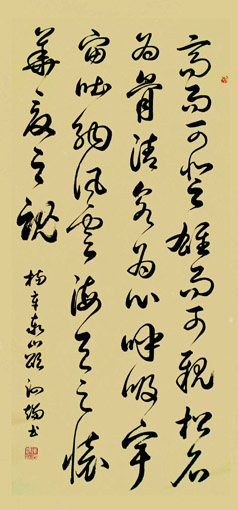 高而可登雄而可親松石
为骨清泉为心呼吸宇
宙吐納風雲海天之懷
華夏之魂
楊辛泰山頌 书